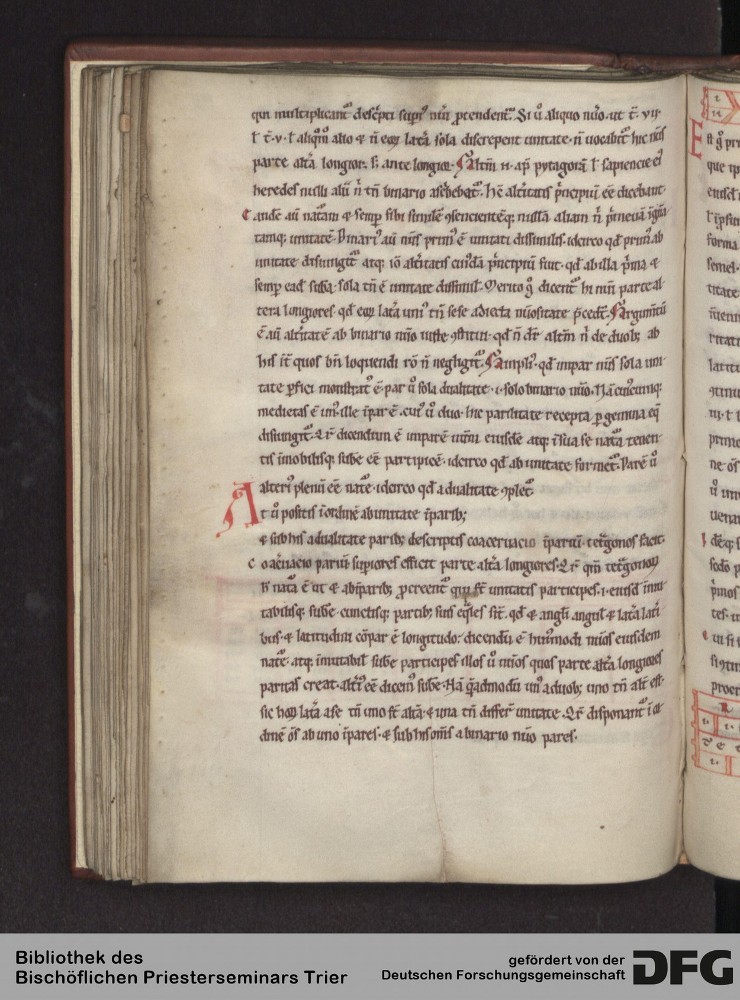 qui multiplicant᷑ desc͛pti sup͛i᷑ nũi ꝓtendent᷑. Si ů aliquo nũo. ut t̃. vıı.
l̃ t̃. v. l̃ aliq̃m alio & ñ eoꝝ lat͛a sola discrepent unitate. ñ uocabit᷑ hic nũs
parte alt͛a longior. s; ante longior. alt͛m .n. ap̃ pytagorã l̃ sapientie ei᷑
heredes nulli alii ñ tñ binario asc͛bebãt. hẽ alt͛itatis p͛ncipiũ ẽẽ dicebant.
eande aũ nat᷑am & semꝑ sibi similẽ ꝯsentientẽq; nullã aliam ñ p͛meuã ignitã
tamq; unitatẽ. Binari᷑ aũ nũs prim᷑ ẽ unitati dissimilis. idcirco qđ prim᷑ ab
unitate disiungit᷑ atq; iõ alt͛itatis cui᷑dã p͛ncipiũ fuit. qđ ab illa p͛ma &
semꝑ eadẽ suƀa sola tñ ẽ unitate dissimil᷑. Merito g̊ dicent᷑ hi nũi parte al
tera longiores qđ eoꝝ lat͛a uni᷑ tñ sese adiecta nũositate p̃cedt᷑. argumtũ
ẽ aũ alt͛itatẽ ab binario nũo iuste ꝯstitui. qđ ñ dr̃ alt͛m ñ de duob; ab
his it͛ quos bñ loquendi rõ ñ negligit᷑. ampli᷑. qđ impar nũs sola uni
tate ꝑfici monstrat᷑ ẽ. par ů sola dualitate .i. solo binario nũo. Nã cuiꝰcumq;
medietas ẽ un᷑. ille ĩpar ẽ. cui᷑ ů duo. hic paritate recepta ꝑ gemina eq̃
disiungit᷑. Qr̃ dicendum ẽ imparẽ nũm eiusdẽ atq; ĩ sua se nat᷑a tenen
tis ĩmobilisq; suƀe ẽẽ participẽ. idcirco qđ ab unitate format᷑. Parẽ ů
alteri᷑ plenũ ẽẽ nat᷑e. idcirco qđ a dualitate ꝯplet᷑.
At ů positis ĩ ordinẽ ab unitate ĩparib;
& sub his a dualitate parib; descriptis coaceruacio ĩpariũ tet͛gonos facit.
coac͛uacio pariũ sup͛iores efficit parte alt͛a longiores. Qr̃ qm̃ tet͛gonoꝝ
h̃ nat᷑a ẽ ut & ab ĩparib; ꝓcreent᷑ qui st᷑ unitatis participes .i. eiusd̃ ĩmu
tabilisq; suƀe. cunctisq; partib; suis eq̃les sit᷑. qđ & angĩi angul᷑ & lat͛a lat͛i
bus. & latitudini cõpar ẽ longitudo. dicendũ ẽ hui᷑modi nũos eiusdem
nat᷑e. atq; ĩmutabil᷑ suƀe participes illos ů nũos quos parte alt͛a longiores
paritas creat. alt͛i᷑ ẽẽ dicem᷑ suƀe. Nã q̃admodũ un᷑ a duob; uno tñ alt᷑ est.
sic hoꝝ lat͛a a se tñ uno st᷑ alt͛a. & una tñ differt᷑ unitate. Qr̃ disponant᷑ ĩ or
dinẽ õs ab uno ĩpares. & sub his oms̃ a binario nũo pares.
Bibliothek des
Bischöflichen Priesterseminars Trier
gefördert von der
Deutschen Forschungsgemeinschaft
DFG